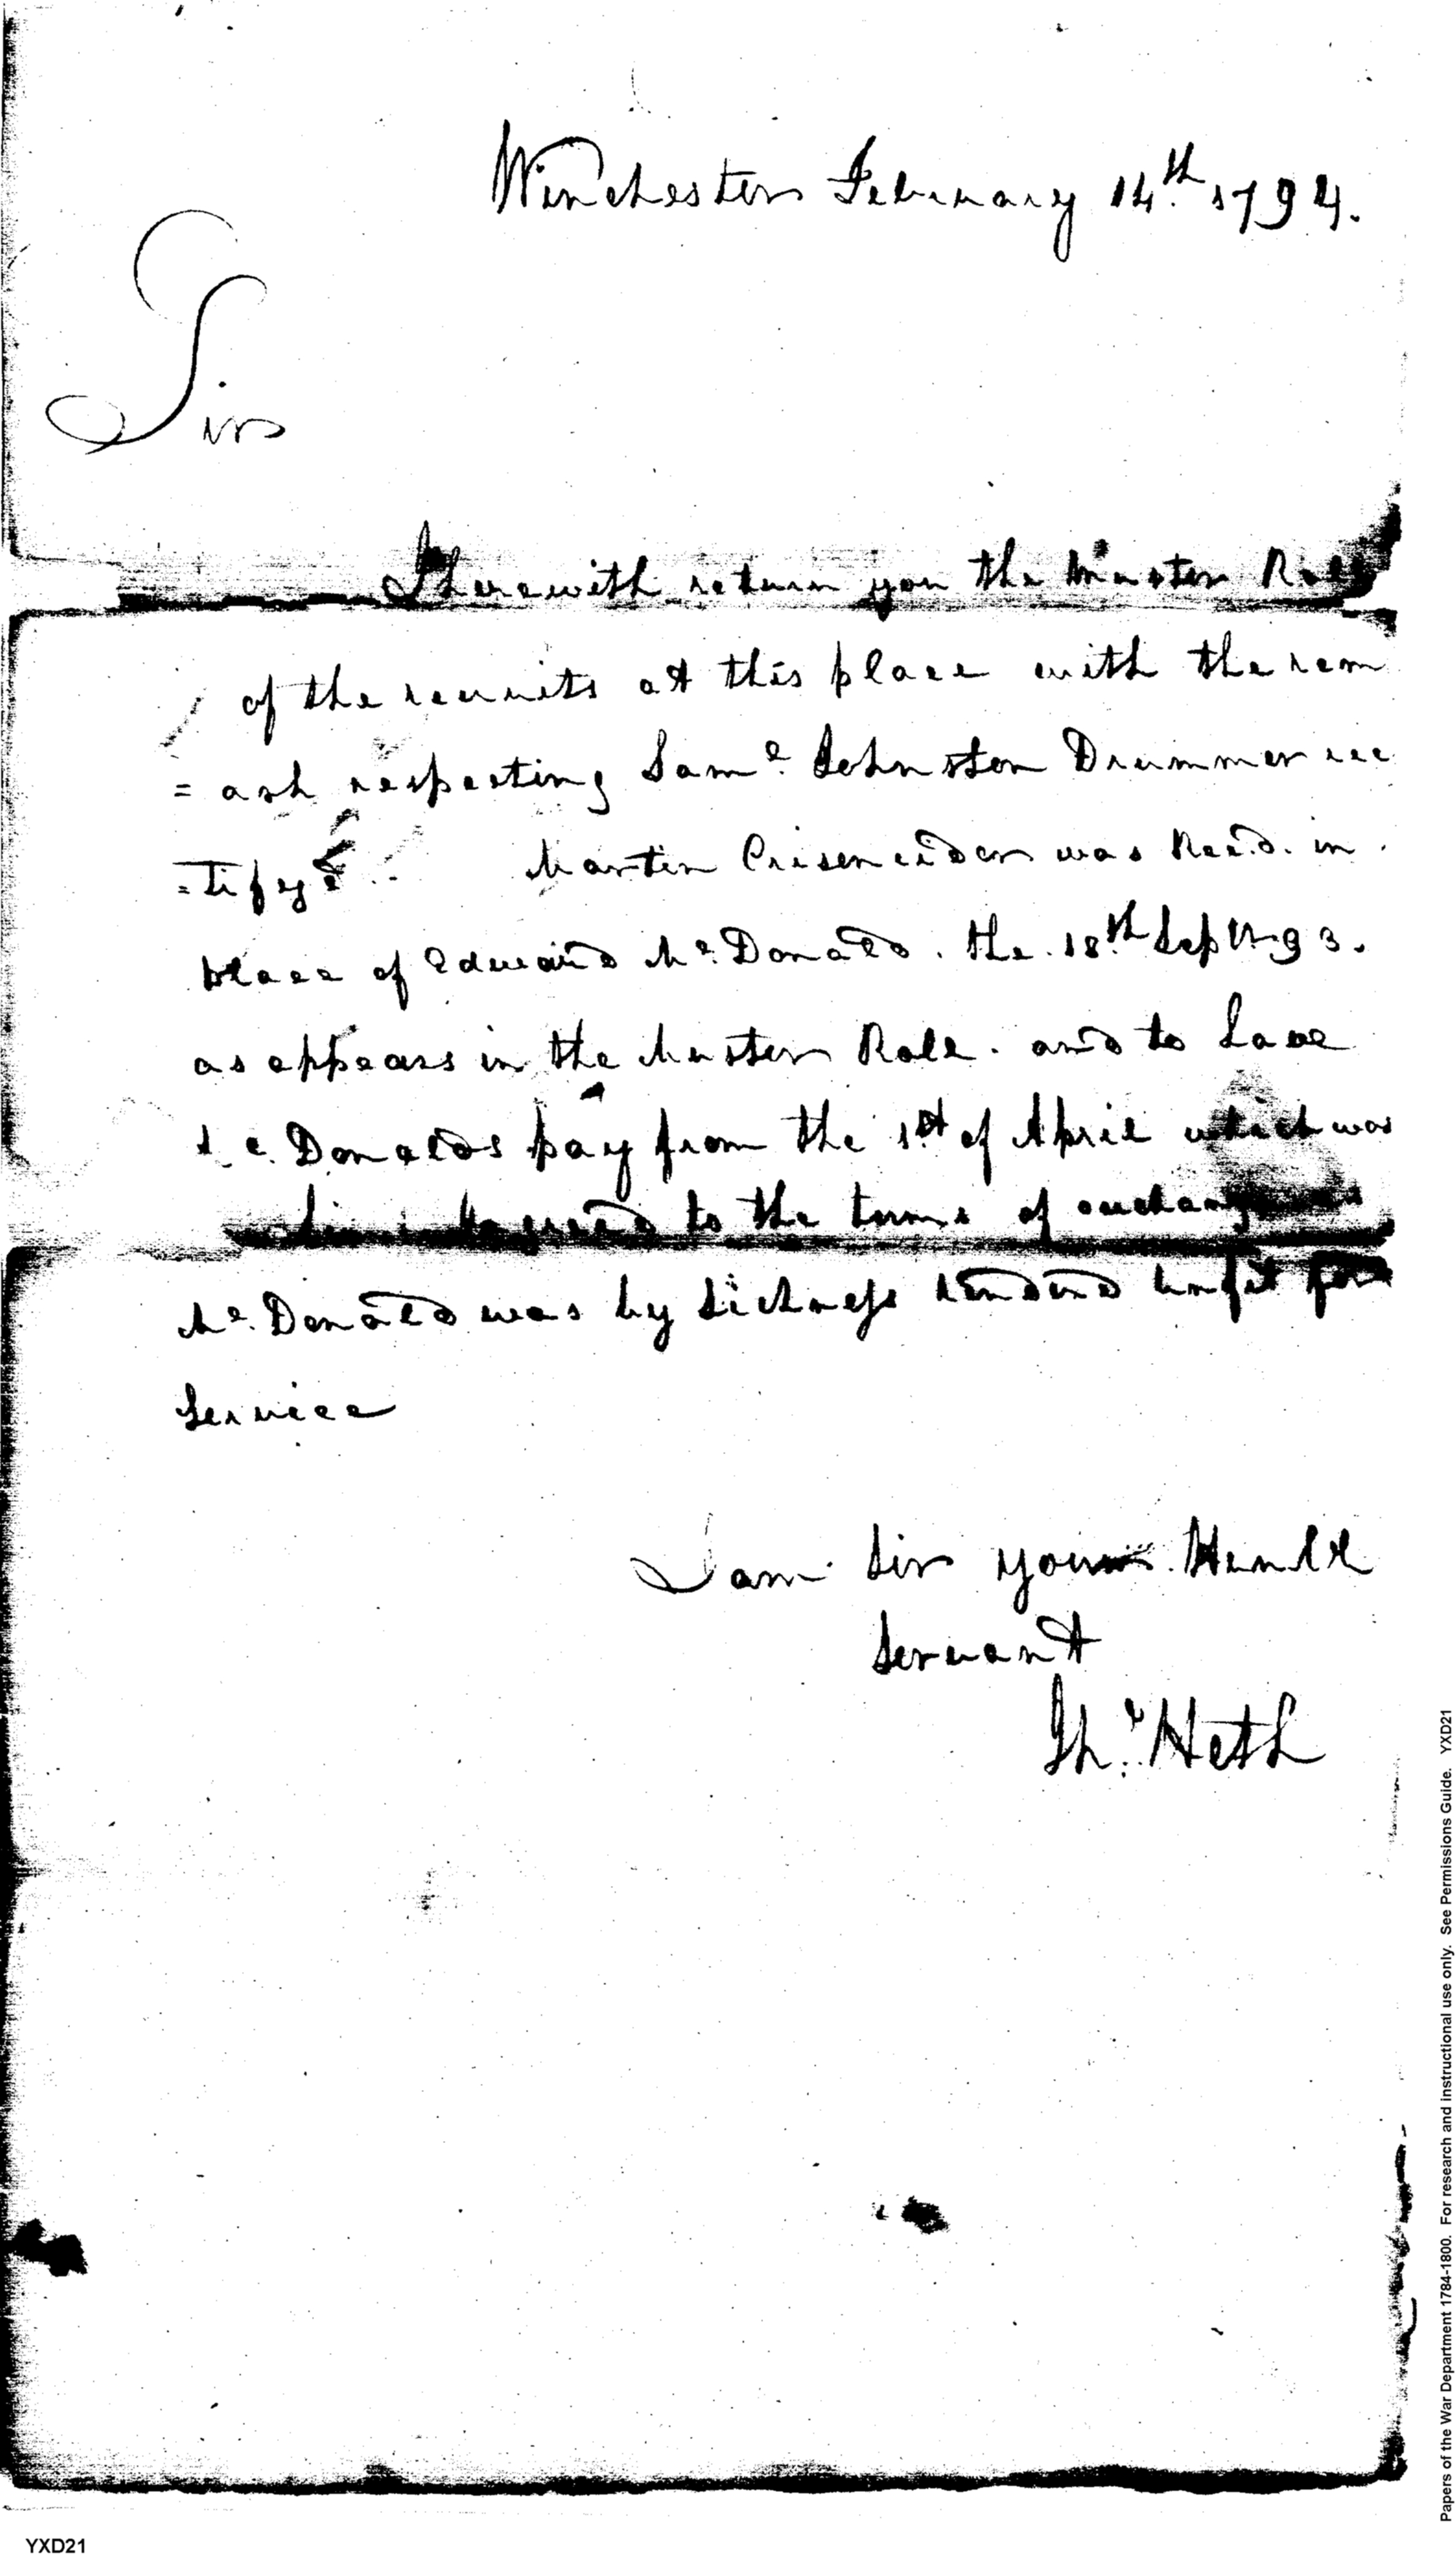 Winchester February 14th 1794.
Sir
I herewith return you the Muster Roll
of the recruits at this place with the rem
=ark respecting Saml. Johnston Drummer rec
=tifyd.. Martin was Recd. in
place of Edward Mc. Donald. the 18th Sept 93.
as appears in the Muster Roll. and to have
Mc. Donalds pay from the 1st of April which was
agreed to the terms of
Mc. Donald was by Sickness rendered unfit for
Service
I am Sir your Humble
Servant
Ths. Heth
Papers of the War Department 1784-1800. For research and instructional use only. See Permissions Guide. YXD21
YXD21